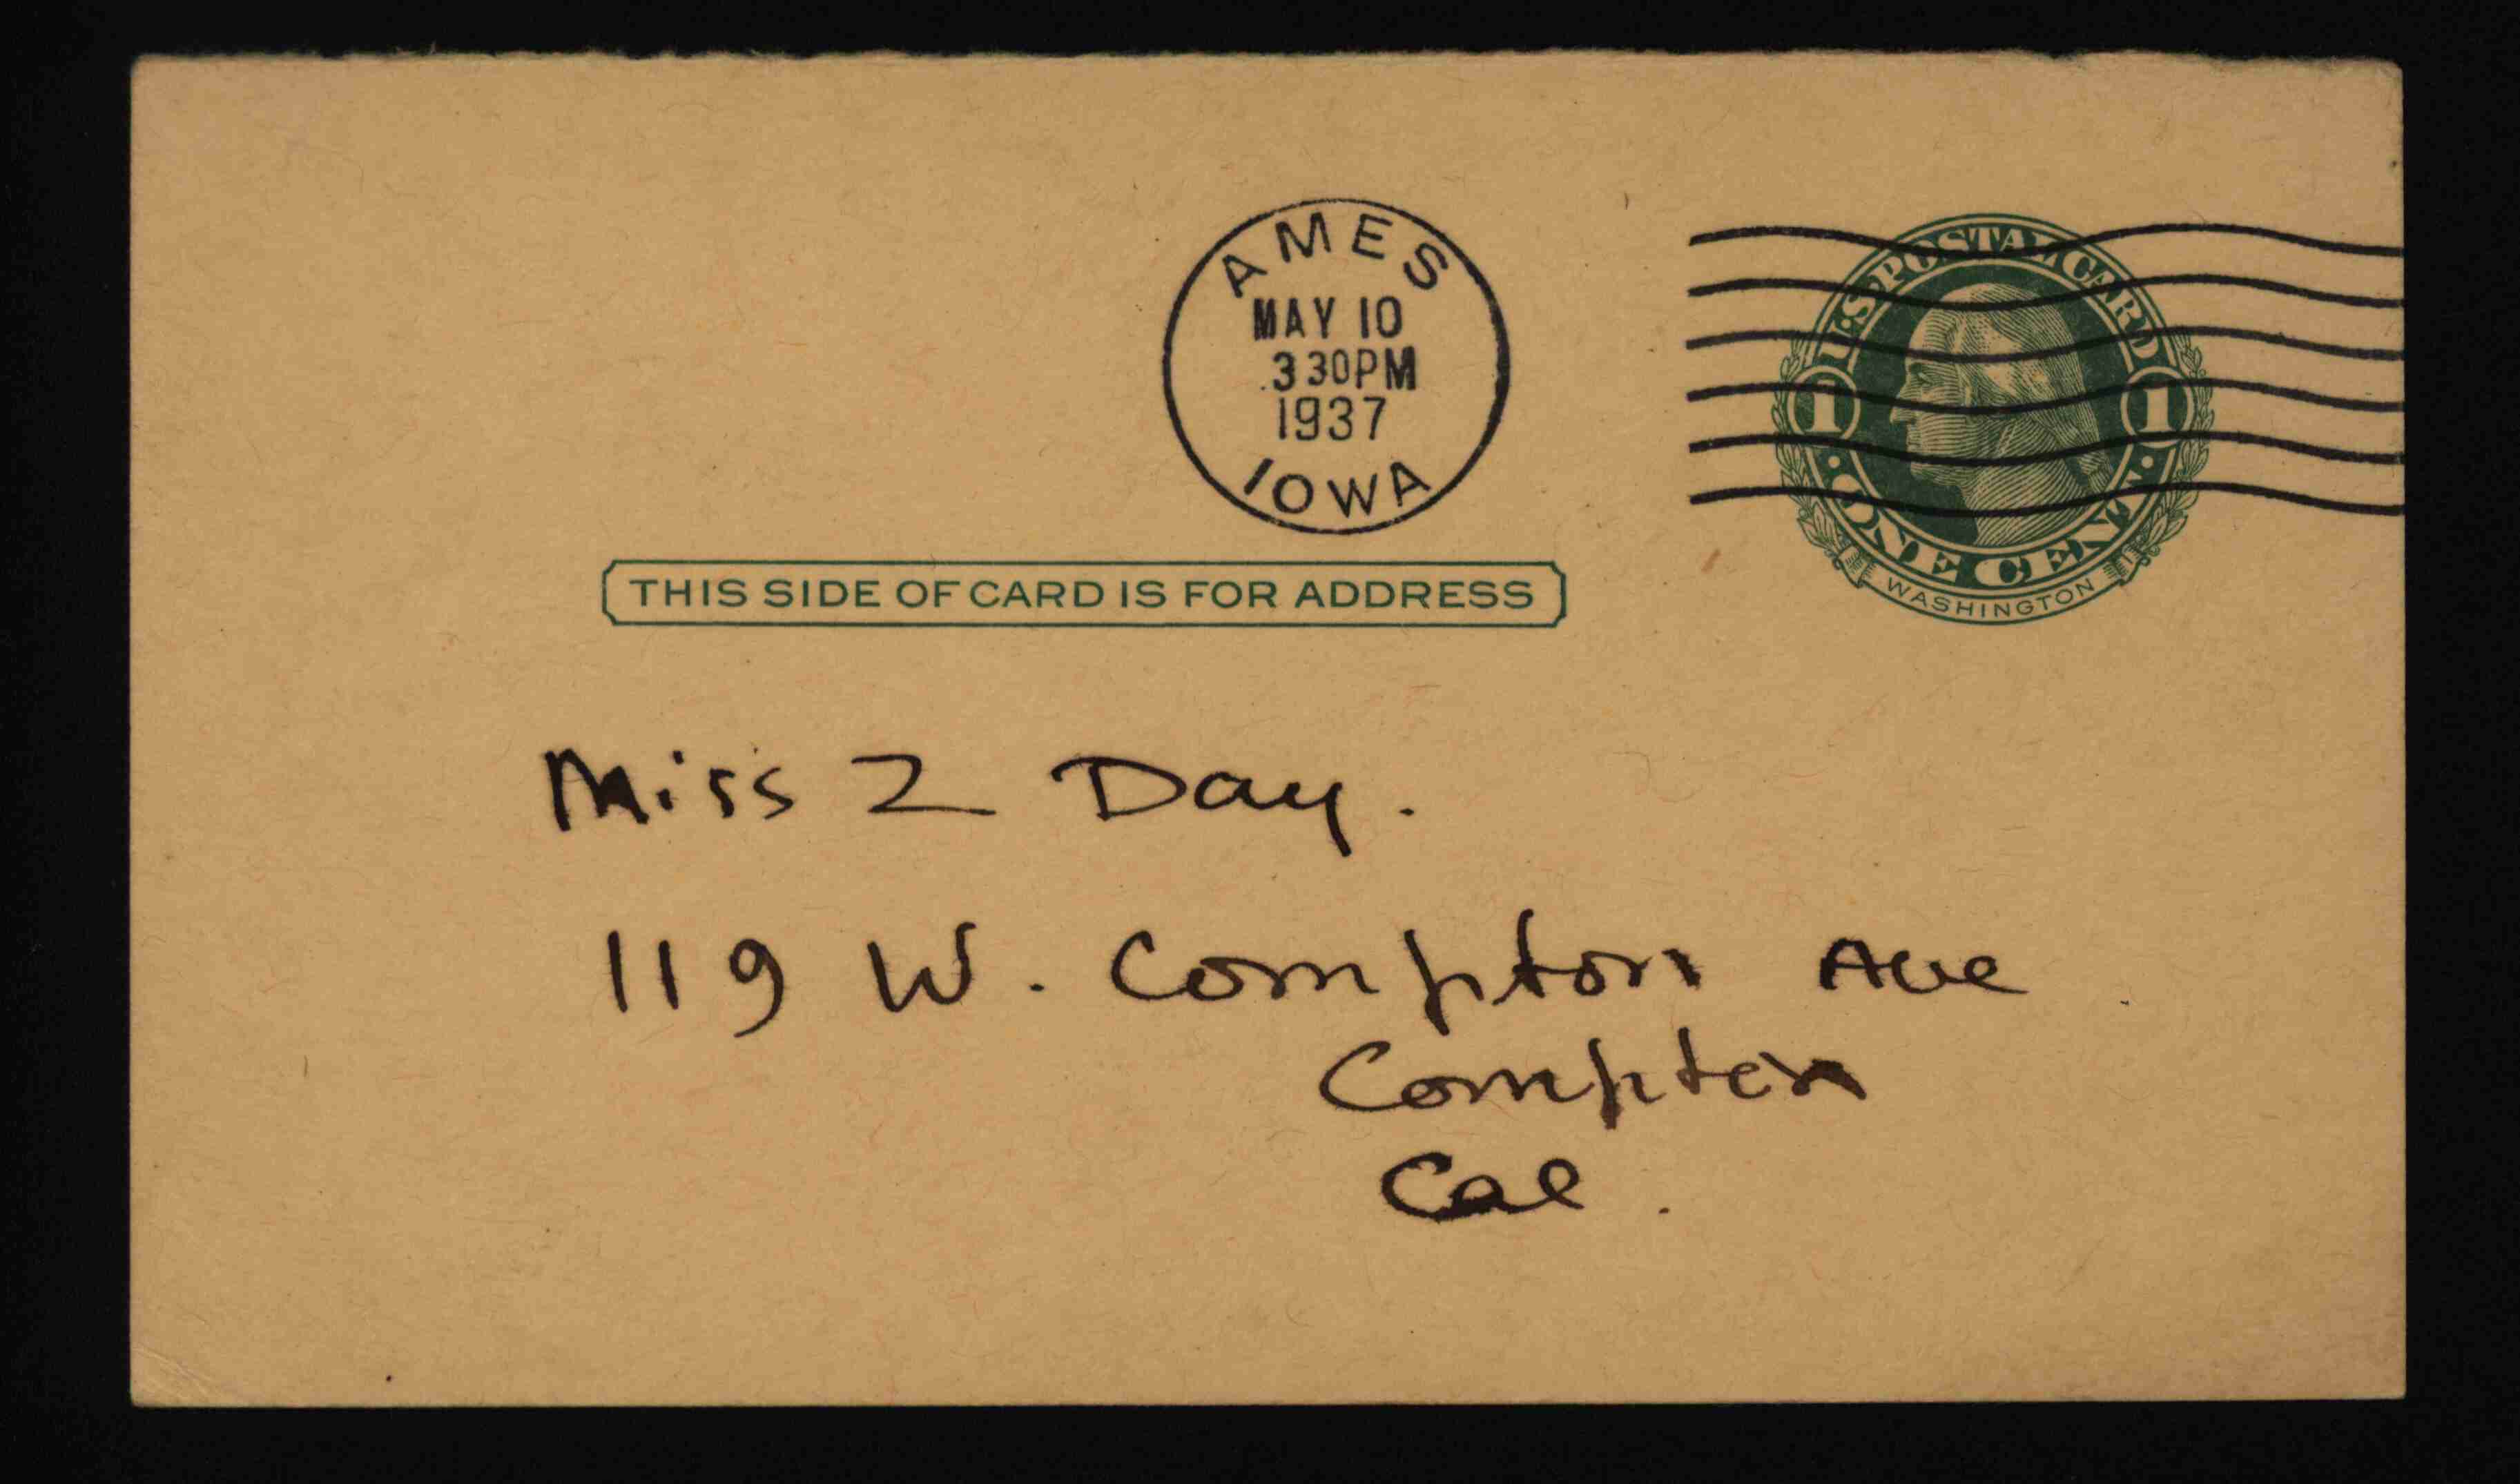 AMES
MAY 10
3 30PM
1937
IOWA
U.S. POSTAL CARD
1 1
ONE CENT
WASHINGTON
THIS SIDE OF CARD IS FOR ADDRESS
Miss Z Day.
119 W. Compton Ave
Compton
Cal.